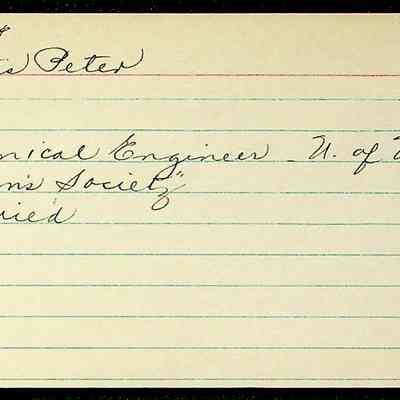 ts Peter
nical Engineer - U. of
n's Society"
ried